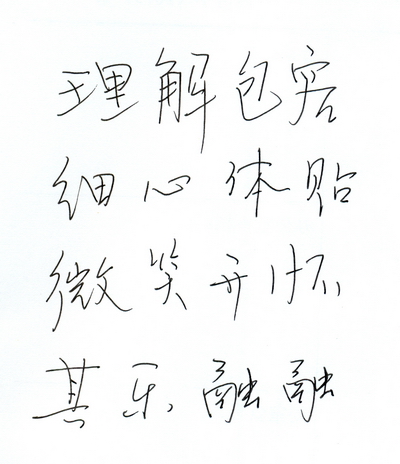 理解包容
细心体贴
微笑开怀
其乐融融